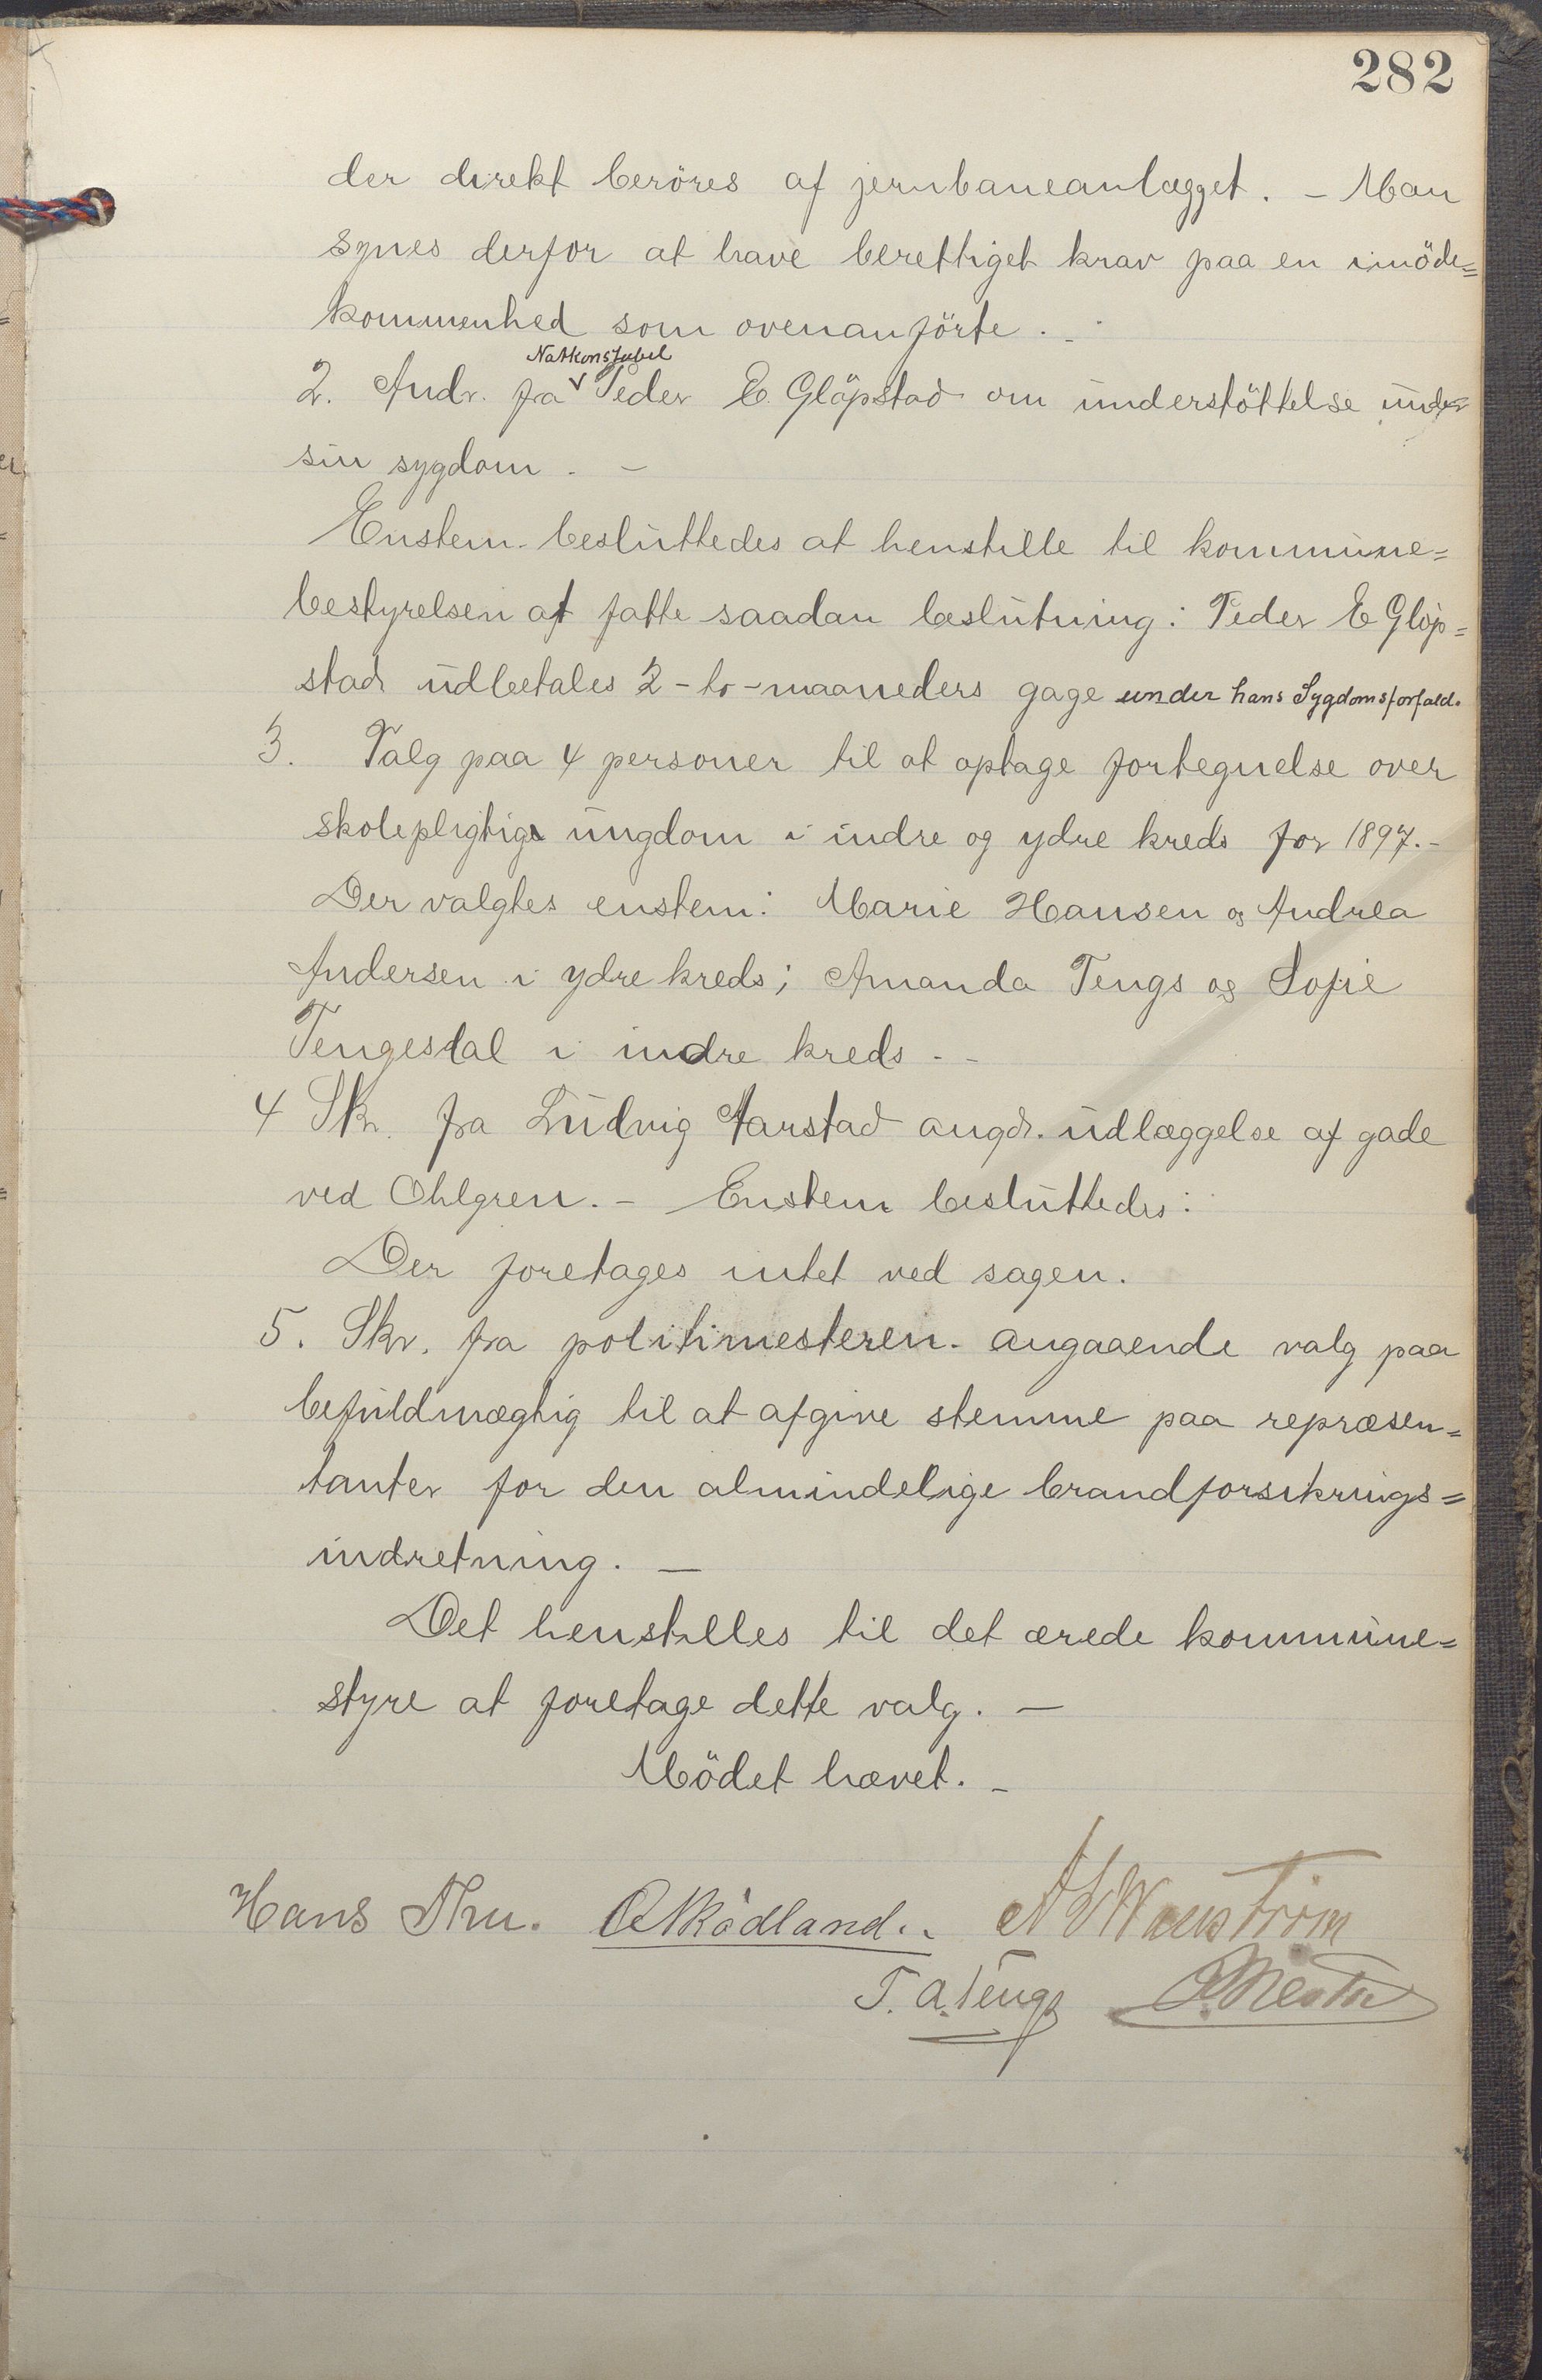 282
der direkt beröres af jernbaneanlægget. – Man
synes derfor at have berettiget krav paa en imöde=
kommenhed som ovenanförte. –
Natkonstabel
2. Andr. fra Peder E. Glöpstad om understöttelse under
sin sygdom. –
Enstem. besluttedes at henstille til kommune=
bestyrelsen at fatte saadan beslutning: Peder E Glöp=
stad udbetales 2 – to – maaneders gage under hans Sygdomsforfald.
3. Valg paa 4 personer til at optage fortegnelse over
skolepligtige ungdom i indre og ydre kreds for 1897. –
Der valgtes enstem: Marie Hansen og Andrea
Andersen i ydre kreds; Amanda Tengs og Sofie
Tengesdal i indre kreds. –
4 Skr. fra Ludvig Aarstad angd. udlæggelse af gade
ved Ohlgren. – Enstem besluttedes:
Der foretages intet ved sagen.
5. Skr. fra politimesteren. angaaende valg paa
befuldmægtig til at afgive stemme paa repræsen=
tanter for den almindelige brandforsikrings=
indretning. –
Det henstilles til det ærede kommune=
styre at foretage dette valg. –
Mödet hævet. –
Hans Thu. Rödland.
T. A. Tengs